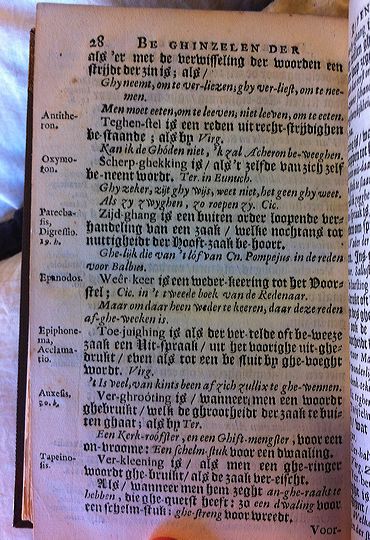 28 BE GHINZELEN DER
als 'er met de verwisseling der woorden een
strijdt der zin is; als/
Ghy neemt, om te ver-liezen; ghy ver-liest, om te nee-
men.
Men moet eeten, om te leeven; niet leeven, om te eeten.
Antithe-
ton.
Teghen-stel is een reden uit recht-strijdighen
be-staande; als by Virg.
Kan ik de Ghóden niet, 'k zal Acheron be-weeghen.
Oxymo-
ton.
Scherp-ghekking is/ als't zelfde van zich zelf
be-neent wordt. Ter. in Eunuch.
Ghy zeker, zijt ghy wijs, weet niet, het geen ghy weet.
Als zy zwyghen, zo roepen zy. Cic.
Parecba-
sis,
Digressio.
19. b.
Zijd-ghang is een buiten order loopende ver-
handeling van een zaak/ welke nochtans tot
nuttigheidt der Hooft-zaak be-hoort.
Ghe-lijk die van 't lóf van Cn. Pompejus in de reden
voor Balbus.
Epanodos.
Weêr-keer is een weder-keering tot het Voor-
stel; Cic. in 't tweede boek van de Redenaar.
Maar om daar heen weder te keeren, daar deze reden
af-ghe-weeken is.
Epiphone-
ma,
Acclama-
tio.
Toe-juighing is als der ver-telde oft be-weeze
zaak een Uit-spraak/ uit het voorighe uit-ghe-
drukt/ even als tot een be-sluit by-ghe-voeght
wordt. Virg.
't Is veel, van kints been af zich zullix te ghe-wennen.
Auxesis.
20. b.
Ver-ghrooting is/ wanneer men een woordt
ghebruikt/ welk de ghrootheidt der zaak te bui-
ten ghaat; als by Ter.
Een Kerk-roofster, en een Ghift-mengster, voor een
on-vroome: Een schelm-stuk voor een dwaaling.
Tapeino-
sis.
Ver-kleening is/ als men een ghe-ringer
woordt ghe-bruikt/ als de zaak ver-eischt.
Als/ wanneer men hem zeght an-ghe-raakt te
hebben, die ghe-quetst heeft: zo een dwaling voor
een schelm-stuk: ghe-streng voor wreedt.
Voor-